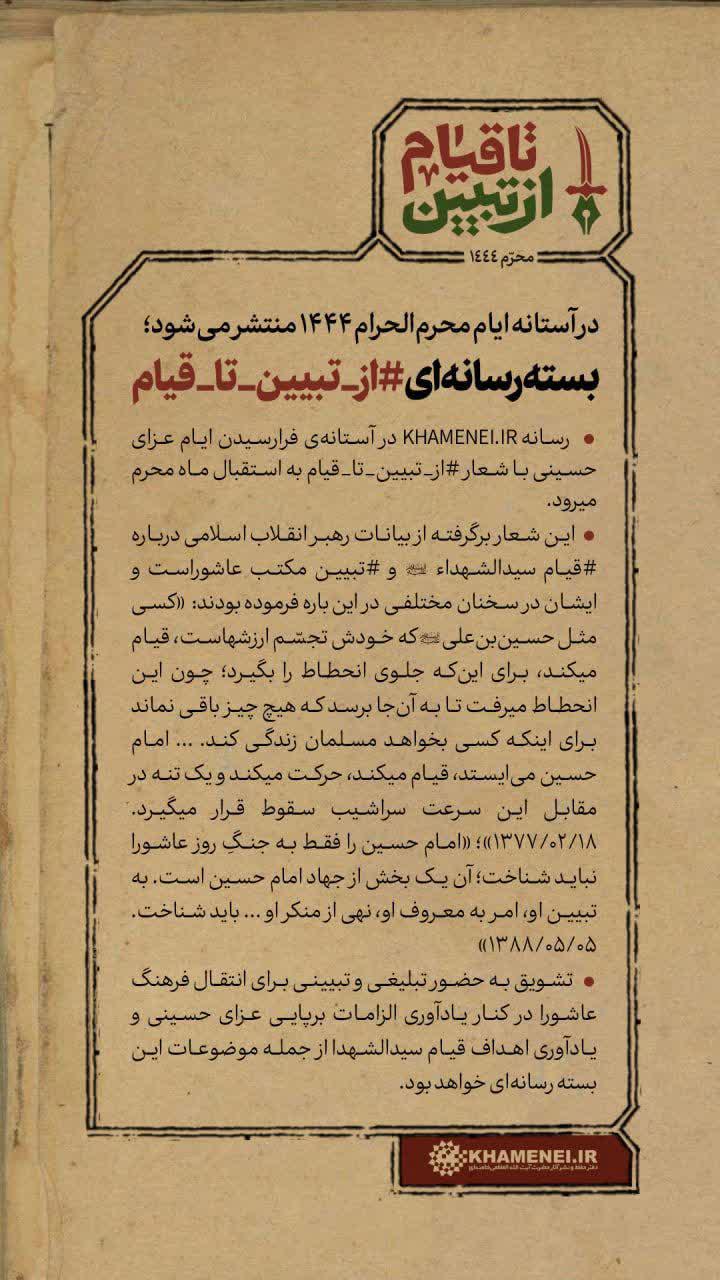 از تبیین
تا قیام
محرّم ۱۴۴۴
در آستانه ایام محرم الحرام ۱۴۴۴ منتشر می شود؛
بسته رسانه‌ای #از_تبیین_تا_قیام
• رسانه KHAMENEI.IR در آستانه‌ی فرارسیدن ایام عزای
حسینی با شعار #از_تبیین_تا_قیام به استقبال ماه محرم
میرود.
• این شعار برگرفته از بیانات رهبر انقلاب اسلامی درباره
#قیام سیدالشهداء و #تبیین مکتب عاشوراست و
ایشان در سخنان مختلفی در این باره فرموده بودند: «کسی
مثل حسین‌بن‌علی که خودش تجسّم ارزشهاست، قیام
میکند، برای این‌که جلوی انحطاط را بگیرد؛ چون این
انحطاط میرفت تا به آن‌جا برسد که هیچ چیز باقی نماند
برای اینکه کسی بخواهد مسلمان زندگی کند. ... امام
حسین می‌ایستد، قیام میکند، حرکت میکند و یک تنه در
مقابل این سرعت سراشیب سقوط قرار میگیرد.
۱۳۷۷/۰۲/۱۸»؛ «امام حسین را فقط به جنگِ روز عاشورا
نباید شناخت؛ آن یک بخش از جهاد امام حسین است. به
تبیین او، امر به معروف او، نهی از منکر او ... باید شناخت.
۱۳۸۸/۰۵/۰۵»
• تشویق به حضور تبلیغی و تبیینی برای انتقال فرهنگ
عاشورا در کنار یادآوری الزامات برپایی عزای حسینی و
یادآوری اهداف قیام سیدالشهدا از جمله موضوعات این
بسته رسانه‌ای خواهد بود.
KHAMENEI.IR
دفتر حفظ و نشر آثار حضرت آیت الله العظمی خامنه‌ای